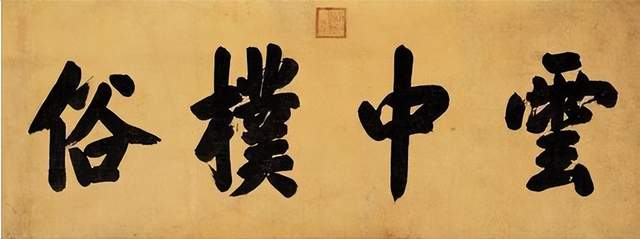 雲中樸俗